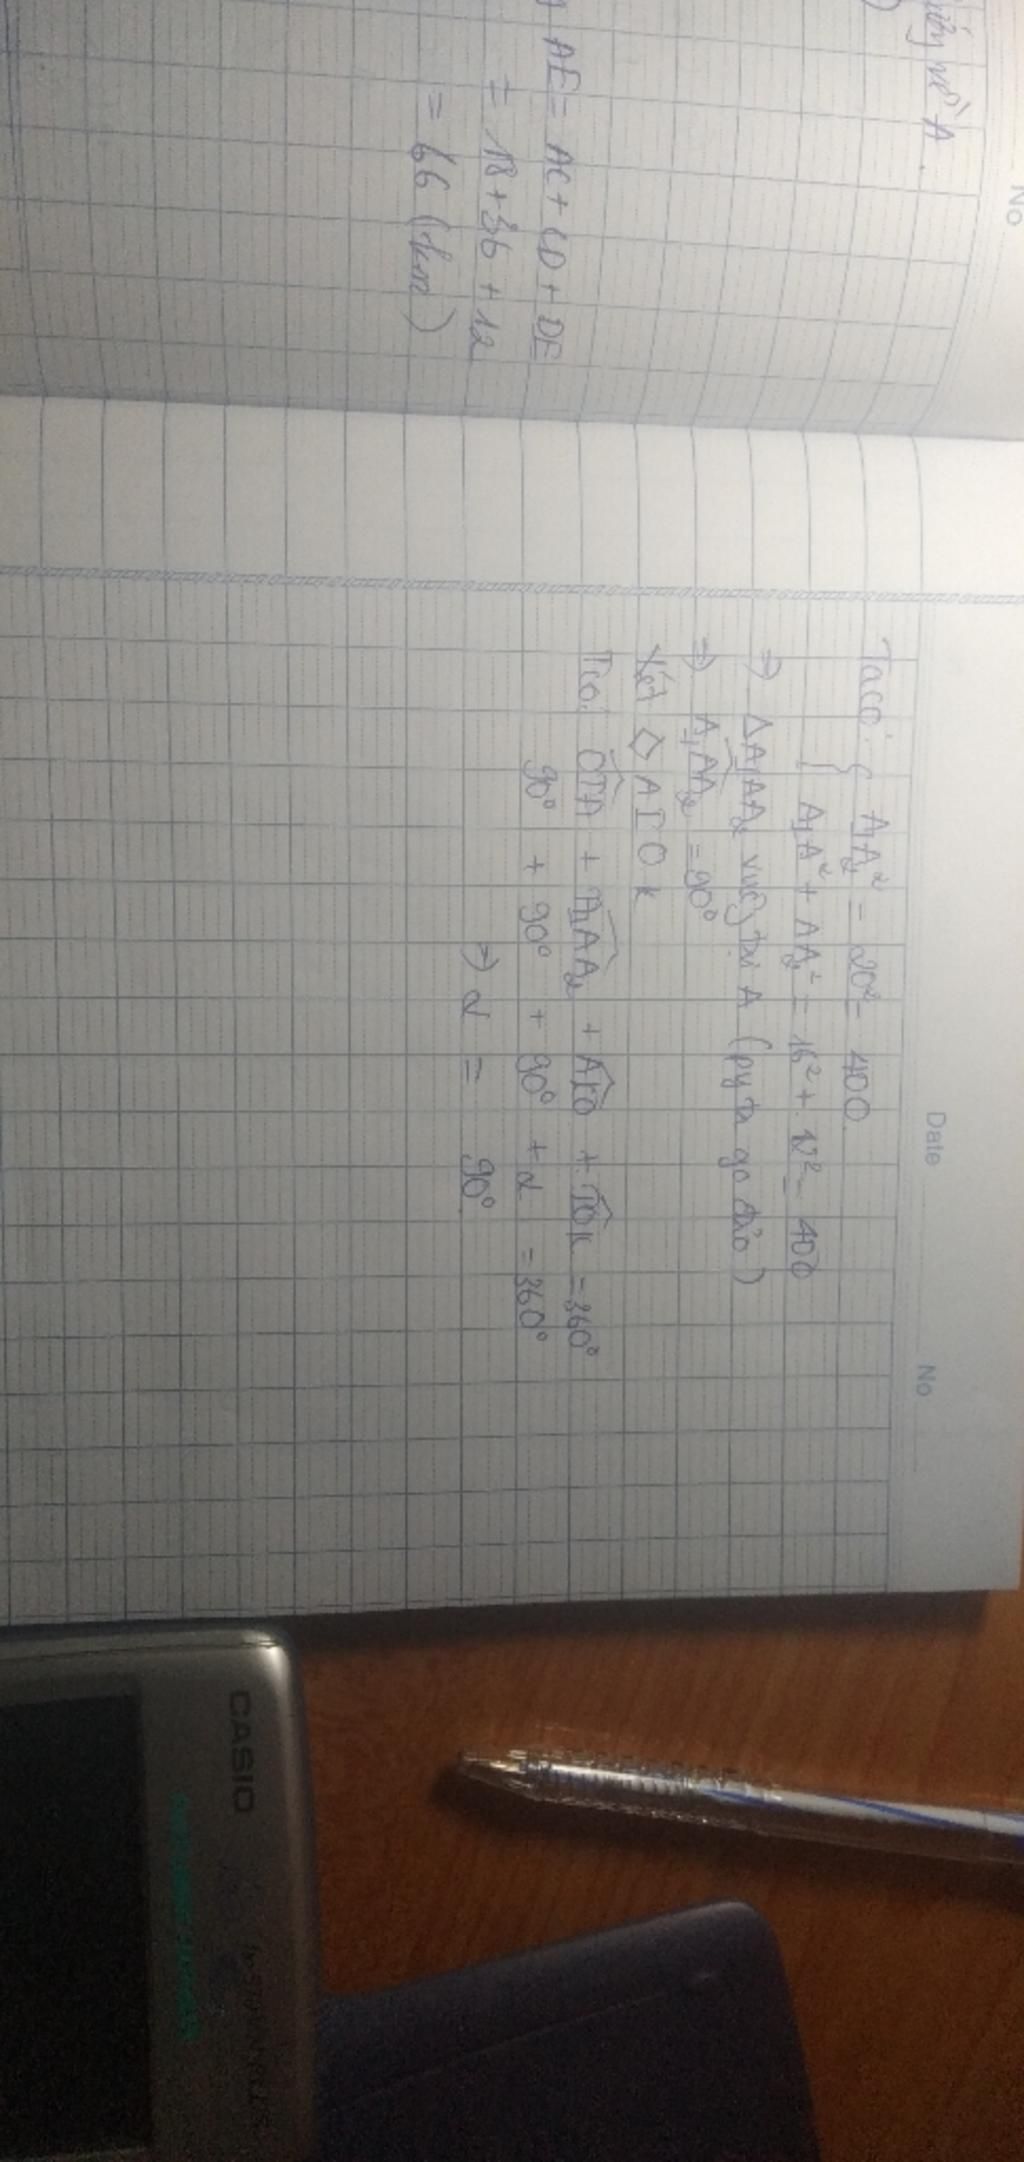 No
về A.
AE = AC + CD + DE
= 18 + 36 + 12
= 66 (km)
Date No
Ta có: { A₁A₂² = 20² = 400
A₁A² + AA₂² = 16² + 12² = 400
⇒ ΔA₁AA₂ vuông tại A (py ta go đảo)
⇒ A₁AA₂ = 90°
Xét ◇ AIOK
Tcó: OIA + A₁AA₂ + AKO + IOK = 360°
90° + 90° + 90° + α = 360°
⇒ α = 90°
CASIO